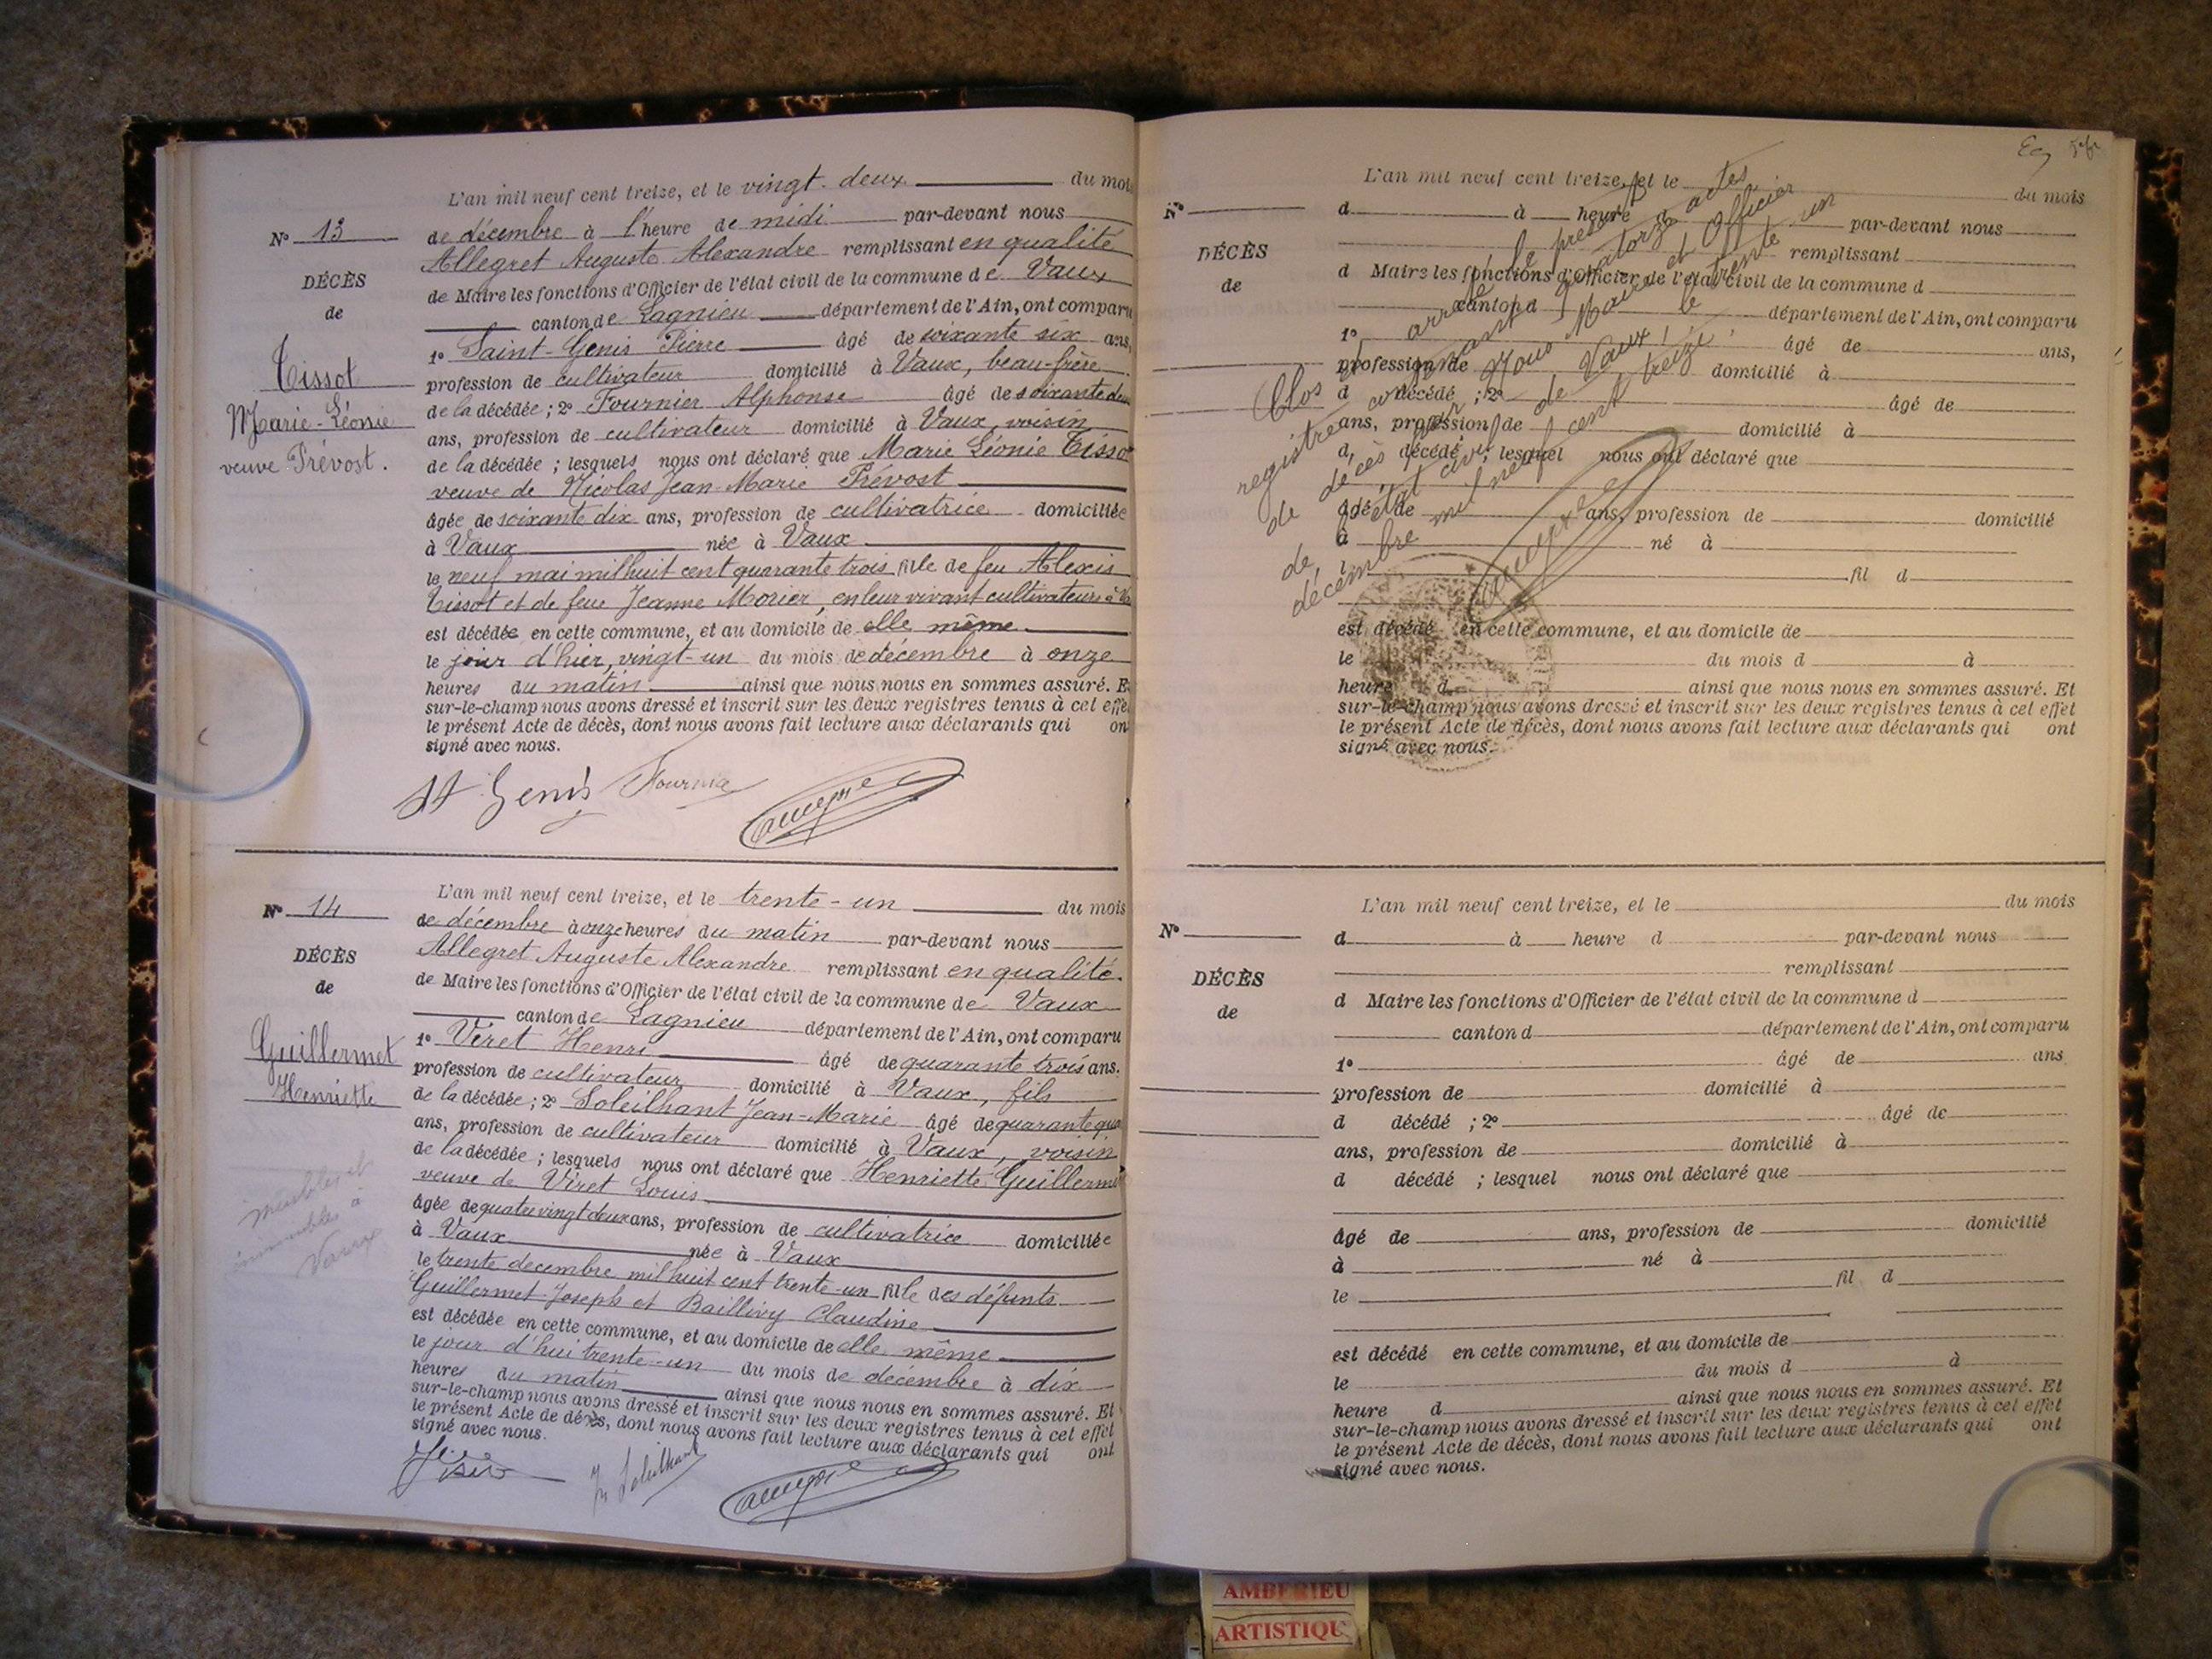 L'an mil neuf cent treize, et le vingt-deux du mois
N° 13
de décembre à l'heure de midi par-devant nous
Allegret Auguste Alexandre remplissant en qualité
DÉCÈS
de Maire les fonctions d'Officier de l'état civil de la commune de Vaux
de
canton de Lagnieu département de l'Ain, ont comparu
1° Saint-Genis Pierre âgé de soixante six ans,
Tissot
profession de cultivateur domicilié à Vaux, beau-frère
Marie-Léonie
de la décédée ; 2° Fournier Alphonse âgé de soixante deux
ans, profession de cultivateur domicilié à Vaux, voisin
veuve Prévost.
de la décédée ; lesquels nous ont déclaré que Marie Léonie Tissot
veuve de Nicolas Jean-Marie Prévost
âgée de soixante dix ans, profession de cultivatrice domiciliée
à Vaux née à Vaux
le neuf mai mil huit cent quarante trois fille de feu Alexis
Tissot et de feue Jeanne Morier, en leur vivant cultivateurs à
est décédée en cette commune, et au domicile de elle même
le jour d'hier, vingt-un du mois de décembre à onze
heures du matin ainsi que nous nous en sommes assuré. Et
sur-le-champ nous avons dressé et inscrit sur les deux registres tenus à cet effet
le présent Acte de décès, dont nous avons fait lecture aux déclarants qui ont
signé avec nous.
St Genis Fournier
L'an mil neuf cent treize, et le trente-un du mois
N° 14
de décembre à onze heures du matin par-devant nous
Allegret Auguste Alexandre remplissant en qualité
DÉCÈS
de Maire les fonctions d'Officier de l'état civil de la commune de Vaux
de
canton de Lagnieu département de l'Ain, ont comparu
1° Véret Henri âgé de quarante trois ans.
Guillermet
profession de cultivateur domicilié à Vaux, fils
Henriette
de la décédée ; 2° Soleilhant Jean-Marie âgé de quarante
ans, profession de cultivateur domicilié à Vaux, voisin
de la décédée ; lesquels nous ont déclaré que Henriette Guillermet
veuve de Véret Louis
âgée de quatre vingt deux ans, profession de cultivatrice domiciliée
à Vaux née à Vaux
le trente decembre mil huit cent trente-un fille des défunts
Guillermet Joseph et Baillivy Claudine
est décédée en cette commune, et au domicile de elle même
le jour d'hui trente-un du mois de décembre à dix
heures du matin ainsi que nous nous en sommes assuré. Et
sur-le-champ nous avons dressé et inscrit sur les deux registres tenus à cet effet
le présent Acte de décès, dont nous avons fait lecture aux déclarants qui ont
signé avec nous.
J. Soleilhant
meubles et
immeubles à
Vaux
L'an mil neuf cent treize, et le du mois
N°
d à heure d par-devant nous
remplissant
DÉCÈS
d Maire les fonctions d'Officier de l'état civil de la commune d
de
canton d département de l'Ain, ont comparu
1° âgé de ans,
profession de domicilié à
d décédé ; 2° âgé de
ans, profession de domicilié à
d décédé ; lesquel nous ont déclaré que
âgé de ans, profession de domicilié
à né à
l fil d
est décédé en cette commune, et au domicile de
le du mois d à
heure d ainsi que nous nous en sommes assuré. Et
sur-le-champ nous avons dressé et inscrit sur les deux registres tenus à cet effet
le présent Acte de décès, dont nous avons fait lecture aux déclarants qui ont
signé avec nous.
Clos et arrêté le présent
registre contenant quatorze actes
de décès par Nous Maire et Officier
de l'état civil de Vaux, le trente un
décembre mil neuf cent treize.
L'an mil neuf cent treize, et le du mois
N°
d à heure d par-devant nous
remplissant
DÉCÈS
d Maire les fonctions d'Officier de l'état civil de la commune d
de
canton d département de l'Ain, ont comparu
1° âgé de ans
profession de domicilié à
d décédé ; 2° âgé de
ans, profession de domicilié à
d décédé ; lesquel nous ont déclaré que
âgé de ans, profession de domicilié
à né à
le fil d
est décédé en cette commune, et au domicile de
le du mois d à
heure d ainsi que nous nous en sommes assuré. Et
sur-le-champ nous avons dressé et inscrit sur les deux registres tenus à cet effet
le présent Acte de décès, dont nous avons fait lecture aux déclarants qui ont
signé avec nous.
AMBERIEU
ARTISTIQU